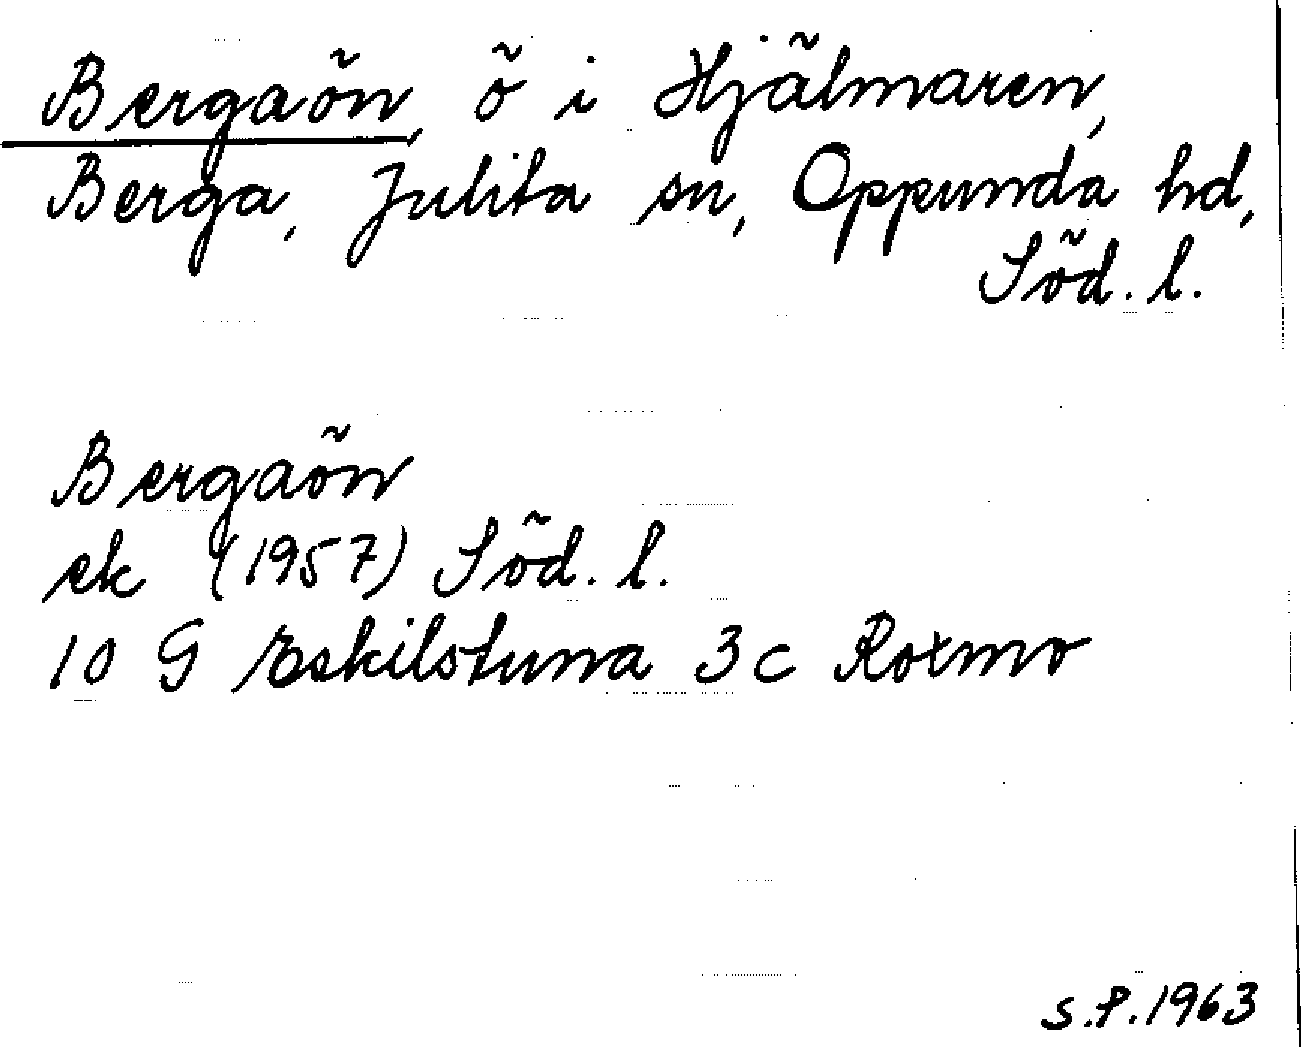 Bergaön, ö i Hjälmaren,
Berga, Julita sn, Oppunda hd,
Söd. l.
Bergaön
ek (1957) Söd. l.
10 G Eskilstuna 3c Roxmo
S.P. 1963